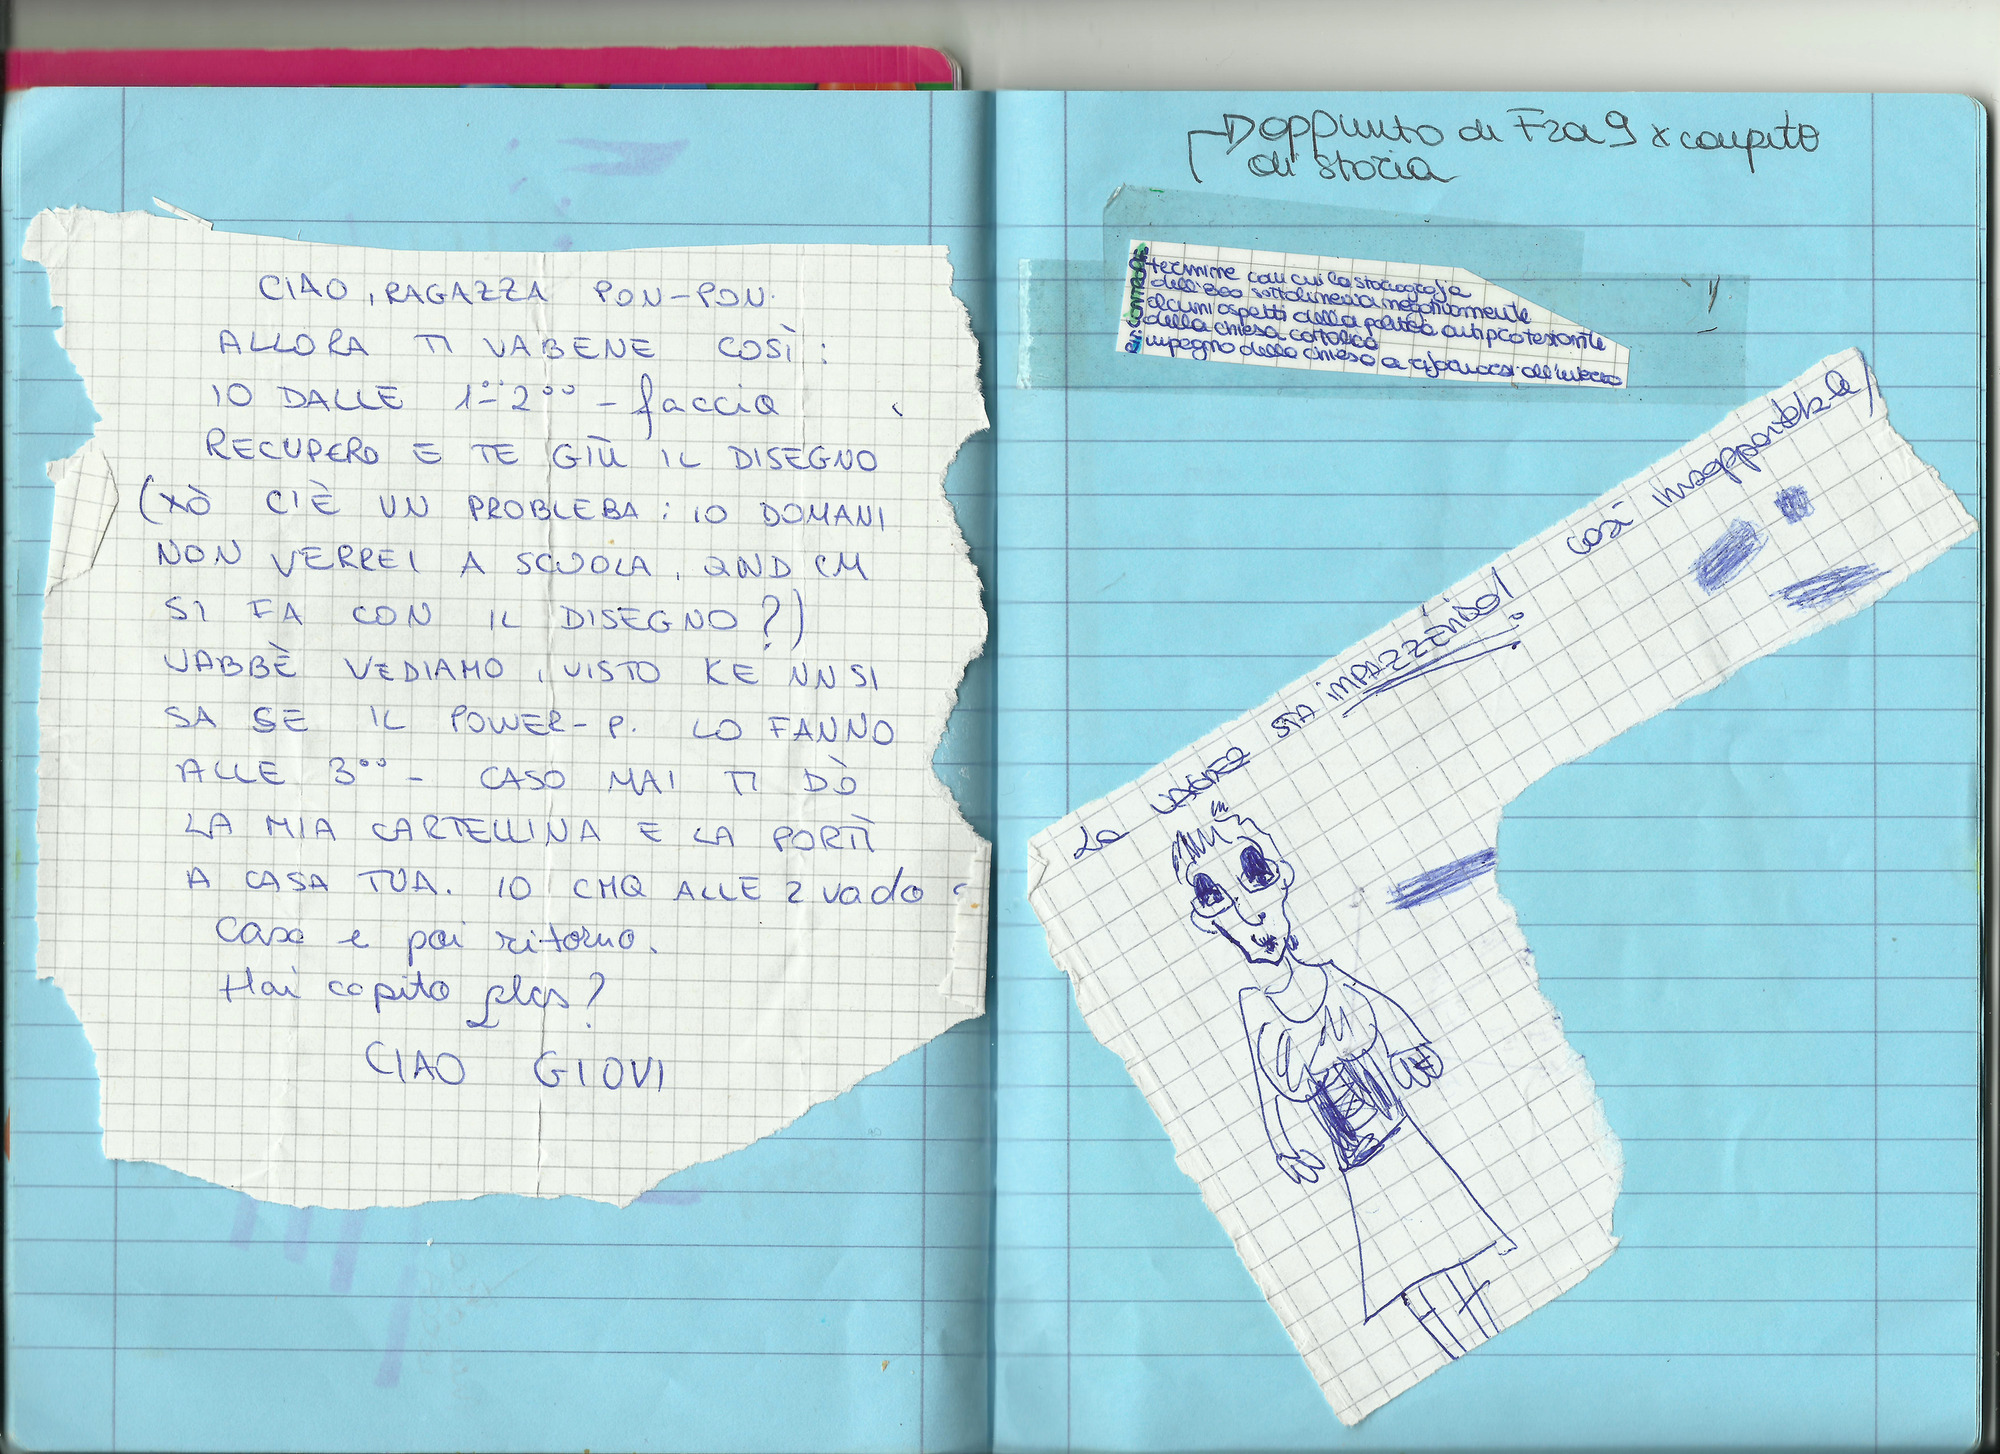 CIAO, RAGAZZA PON-PON.
ALLORA TI VA BENE COSÌ:
IO DALLE 1-2°° - faccio
RECUPERO E TE GIÙ IL DISEGNO
(XÒ CIÈ UN PROBLEBA: IO DOMANI
NON VERREI A SCUOLA, QND CM
SI FA CON IL DISEGNO?)
VABBÈ VEDIAMO, VISTO KE NN SI
SA SE IL POWER-P. LO FANNO
ALLE 3°° - CASO MAI TI DÒ
LA MIA CARTELLINA E LA PORTI
A CASA TUA. IO CMQ ALLE 2 vado
casa e poi ritorno.
Hai capito plas?
CIAO GIOVI
appunto di Fra 9 x compito
di storia
termine con cui la storiografia
dell'800 sottolineava negativamente
alcuni aspetti della politica antiprotestante
della chiesa cattolica
impegno della chiesa a
La STA IMPAZZENDO! così insopportabile/